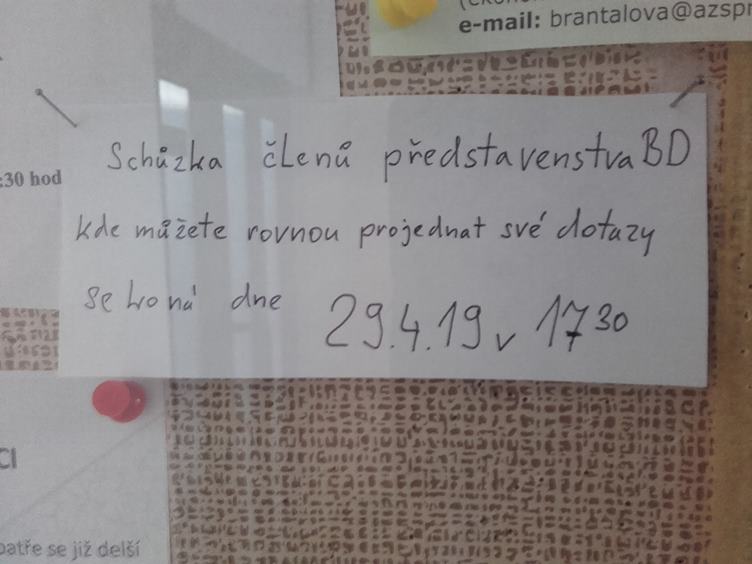 e-mail: brantalova@azspr
Schůzka členů představenstva BD
:30 hod
kde můžete rovnou projednat své dotazy
se koná dne 29.4.19 v 17³⁰
CI
patře se již delší